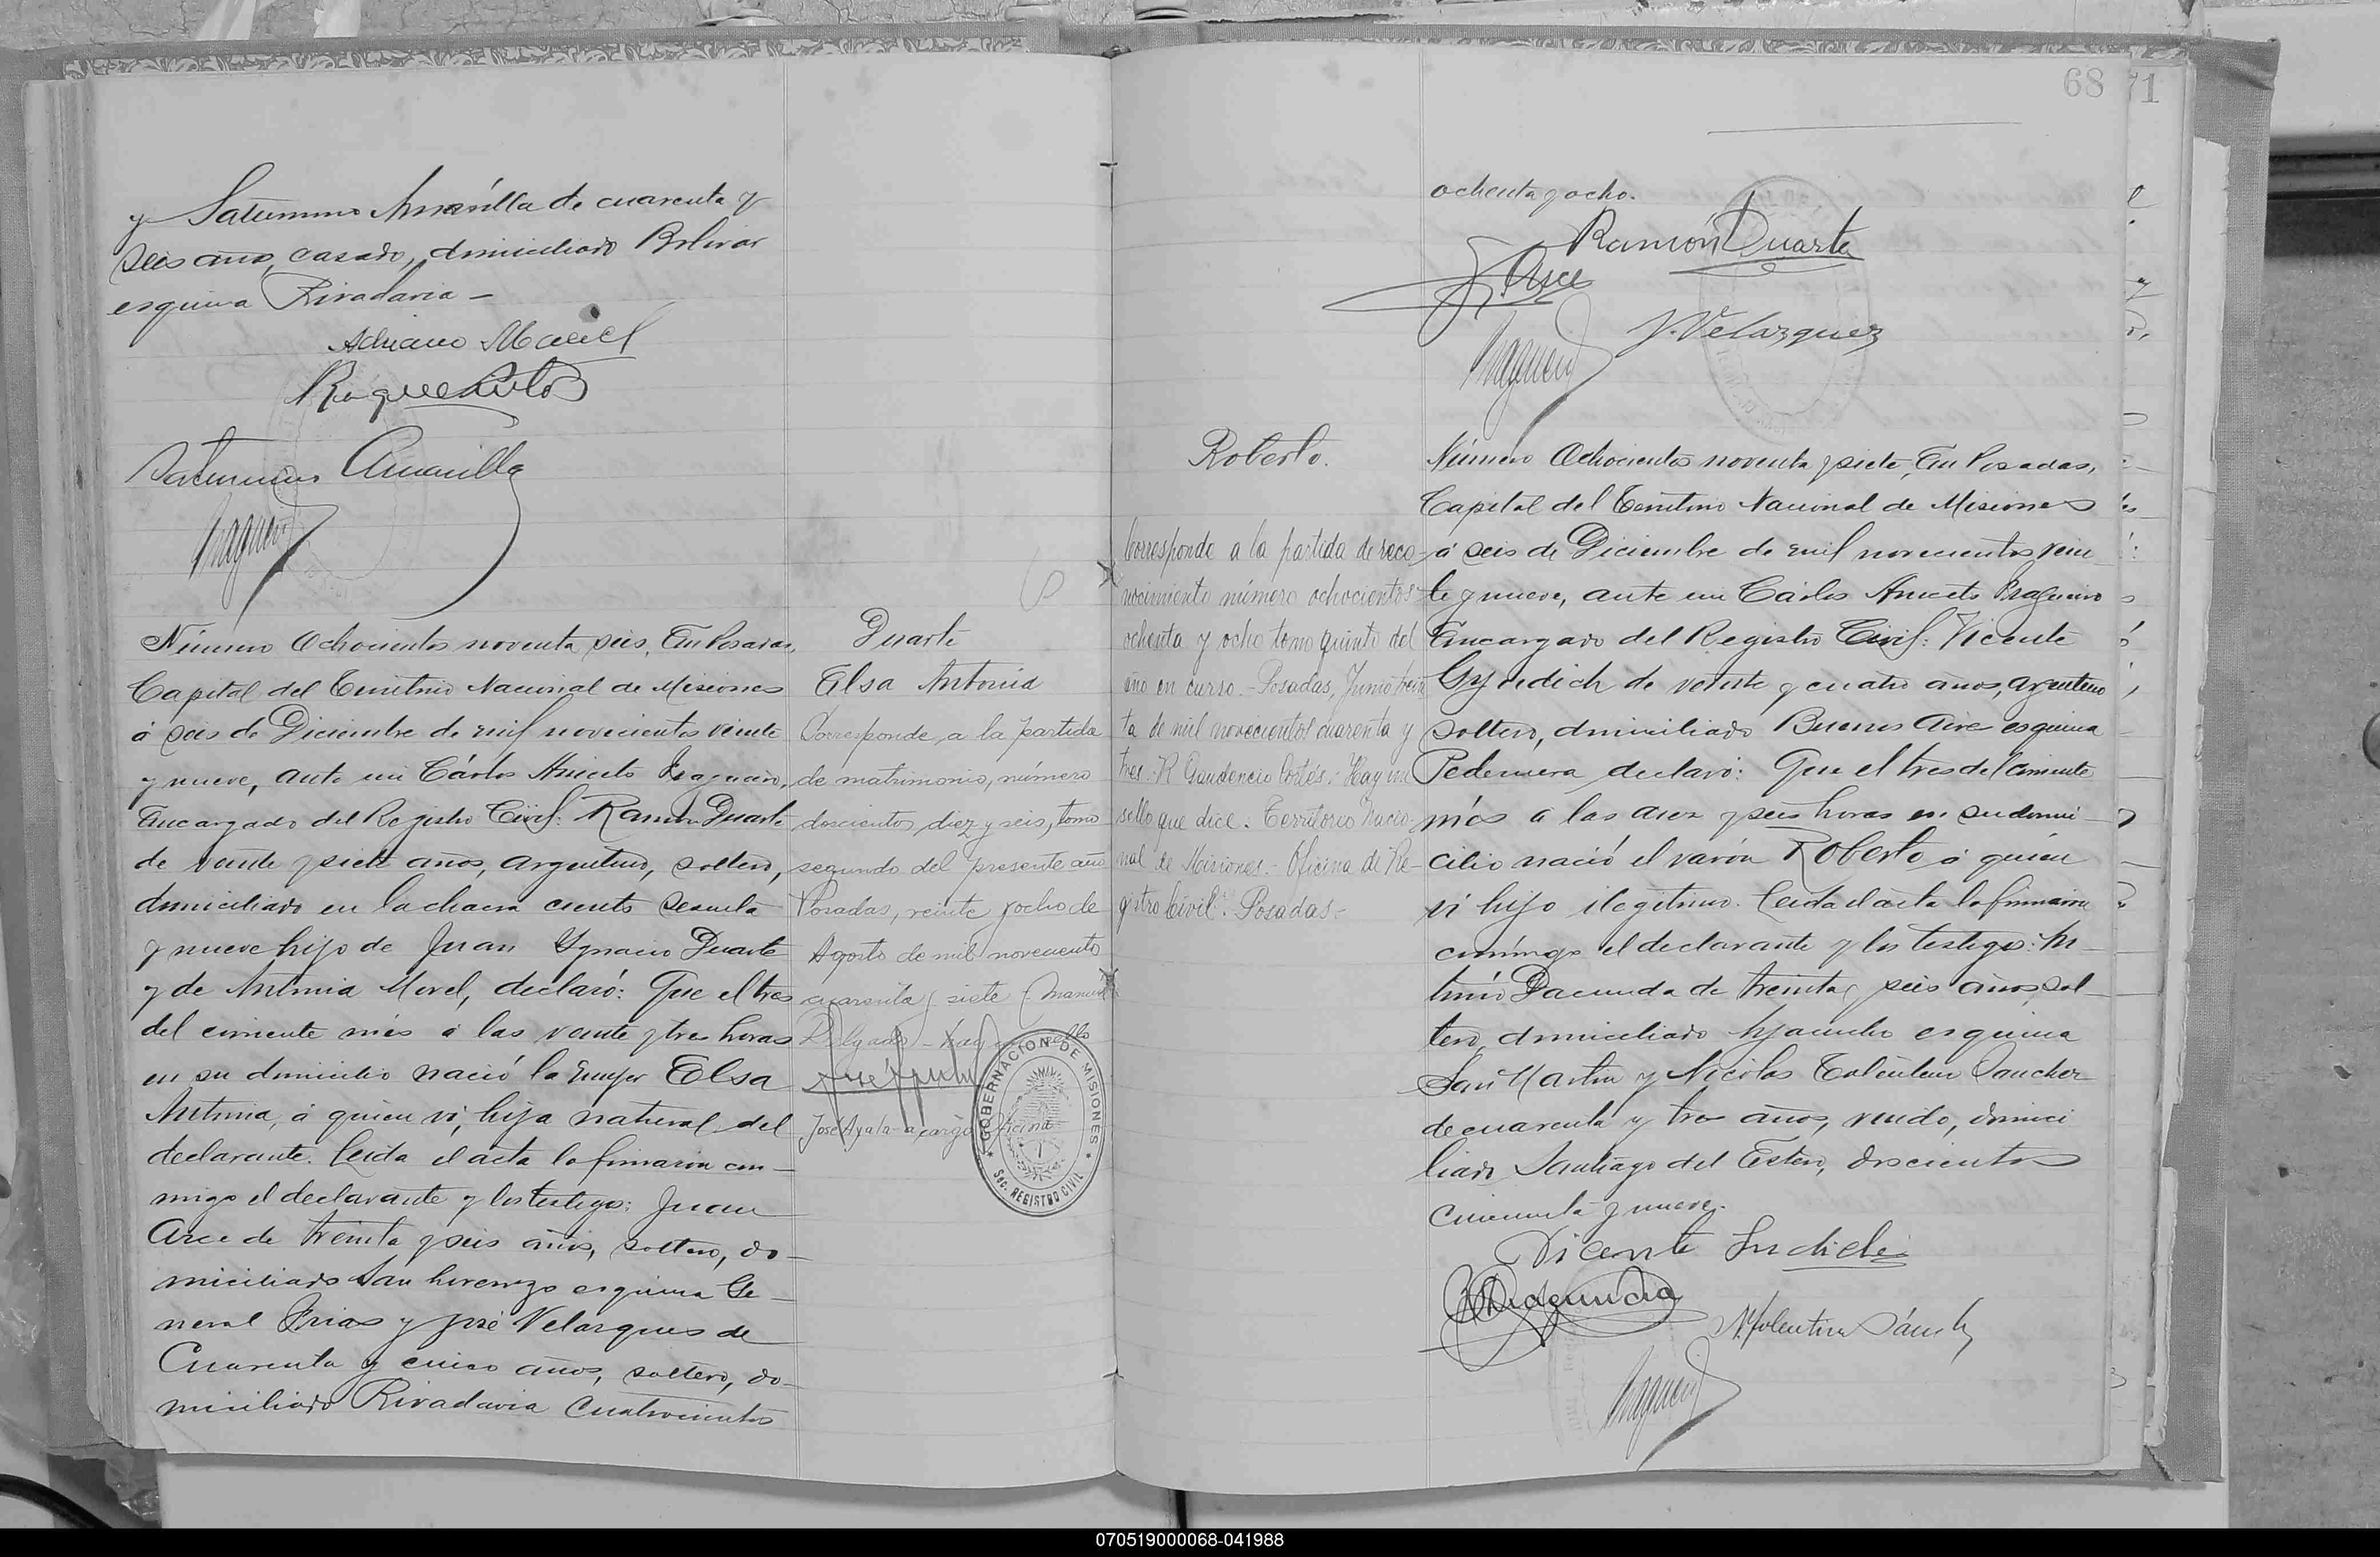 y Saturnino Amarilla de cuarenta y
seis años, casado, domiciliado Bolivar
esquina Rivadavia -
Adriano Maciel
Roque
Saturnino Amarilla
Número Ochocientos noventa seis, En Posadas,
Capital del Territorio Nacional de Misiones
á seis de Diciembre de mil novecientos veinte
y nueve, ante mi Cárlos Aniceto Fragueiro,
Encargado del Registro Civil: Ramón Duarte
de veinte y siete años, argentino, soltero,
domiciliado en la chacra ciento sesenta
y nueve hijo de Juan Ygnacio Duarte
y de Antonia Morel, declaró: Que el tres
del corriente més á las veinte y tres horas
en su domicilio nació la mujer Elsa
Antonia, á quien ví, hija natural del
declarante. Leida el acta la firmaron con-
migo el declarante y los testigos: Juan
Arce de treinta y seis años, soltero, do-
miciliado San Lorenzo esquina Ge-
neral Frias y José Velazques de
Cuarenta y cinco años, soltero, do-
miciliado Rivadavia Cuatrocientos
Duarte
Elsa Antonia
Corresponde, a la partida
de matrimonio, número
doscientos diez y seis, tomo
segundo del presente año
Posadas, veinte y ocho de
Agosto de mil novecientos
cuarenta y siete (Manuel
Delgado - Hay un sello
José Ayala a cargo Oficina
GOBERNACION DE MISIONES
SEC. REGISTRO CIVIL
68
71
ochenta y ocho.
Ramón Duarte
J. Arce
J. Velazquez
Roberto.
Corresponde a la partida de reco-
nocimiento número ochocientos
ochenta y ocho tomo quinto del
año en curso. - Posadas, Junio trein
ta de mil novecientos cuarenta y
tres. - R Gaudencio Cortés. Hay un
sello que dice: Territorio Nacio-
nal de Misiones. - Oficina de Re-
gistro Civil. Posadas -
Número Ochocientos noventa y siete, En Posadas,
Capital del Territorio Nacional de Misiones
á seis de Diciembre de mil novecientos vein
te y nueve, ante mi Cárlos Aniceto Fragueiro
Encargado del Registro Civil: Vicente
de veinte y cuatro años, argentino
soltero, domiciliado Buenos Aires esquina
Pedernera, declaró: Que el tres del corriente
més á las diez y seis horas en su domi-
cilio nació el varón Roberto á quien
ví hijo ilegitimo. Leida el acta la firmaron
conmigo el declarante y los testigos: An-
tonio Dacunda de treinta y seis años, sol-
tero, domiciliado Ayacucho esquina
San Martin y Nicolas Tolentino Sanchez
de cuarenta y tres años, viudo, domici
liado Santiago del Estero, doscientos
cincuenta y nueve.
Vicente
N. Tolentino Sánchez
070519000068-041988